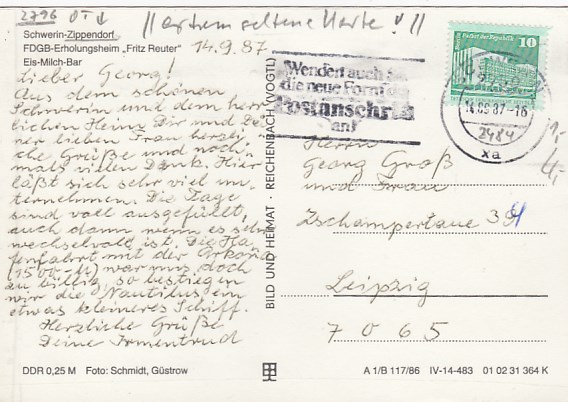 2796 OT
//extrem seltene Karte!//
Schwerin-Zippendorf
FDGB-Erholungsheim „Fritz Reuter"
Eis-Milch-Bar
14.9.87
Lieber Georg!
Aus dem schönen
Schwerin und dem herr-
lichen Heim Dir und Dei-
ner lieben Frau herzli-
che Grüße und noch-
mals vielen Dank. Hier
läßt sich sehr viel un-
ternehmen. Die Tage
sind voll ausgefüllt,
auch dann wenn es sehr
wechselvoll ist. Die Ha-
fenfahrt mit der Arkona
war uns doch
zu billig, so bestiegen
wir die Nautilus ein
etwas kleineres Schiff.
Herzliche Grüße
Deine Irmentrud
DDR 0,25 M Foto: Schmidt, Güstrow
BILD UND HEIMAT · REICHENBACH (VOGTL)
Wenden auch Sie
die neue Form der
Postanschrift
an!
10
14.09.87-16
2484
xa
1,-
Herrn
Georg Groß
und Frau
Zschampertaue
Leipzig
7065
A 1/B 117/86 IV-14-483 01 02 31 364 K